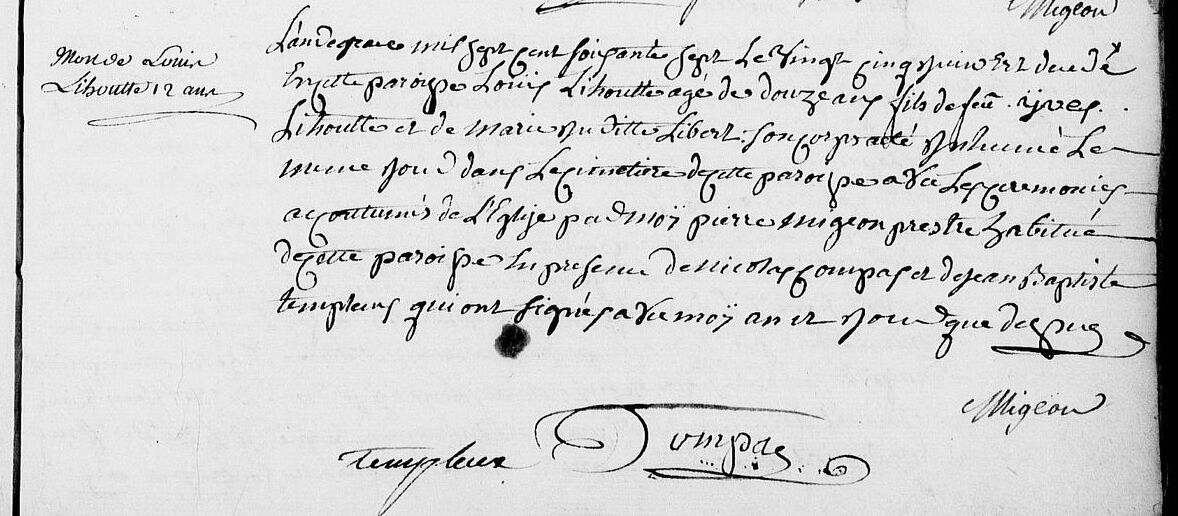 Migeon
Mort de Louis
Lihoutte 12 ans
L'an de grace mil sept cent soixante sept Le vingt cinq juin Est decedé
En cette paroisse Louis Lihoutte agé de douze ans fils de feu yves
Lihoutte et de Marie Juditte Libert. Son corps a eté Inhumé Le
meme jour dans Le cimetiere de cette paroisse avec Les ceremonies
accoutumés de L'Eglise par moÿ pierre Migeon prestre habitué
de cette paroisse En presence de Nicolas Compas et de Jean Baptiste
templeux qui ont signés avec moÿ an et jour que dessus
Migeon
templeux Compas